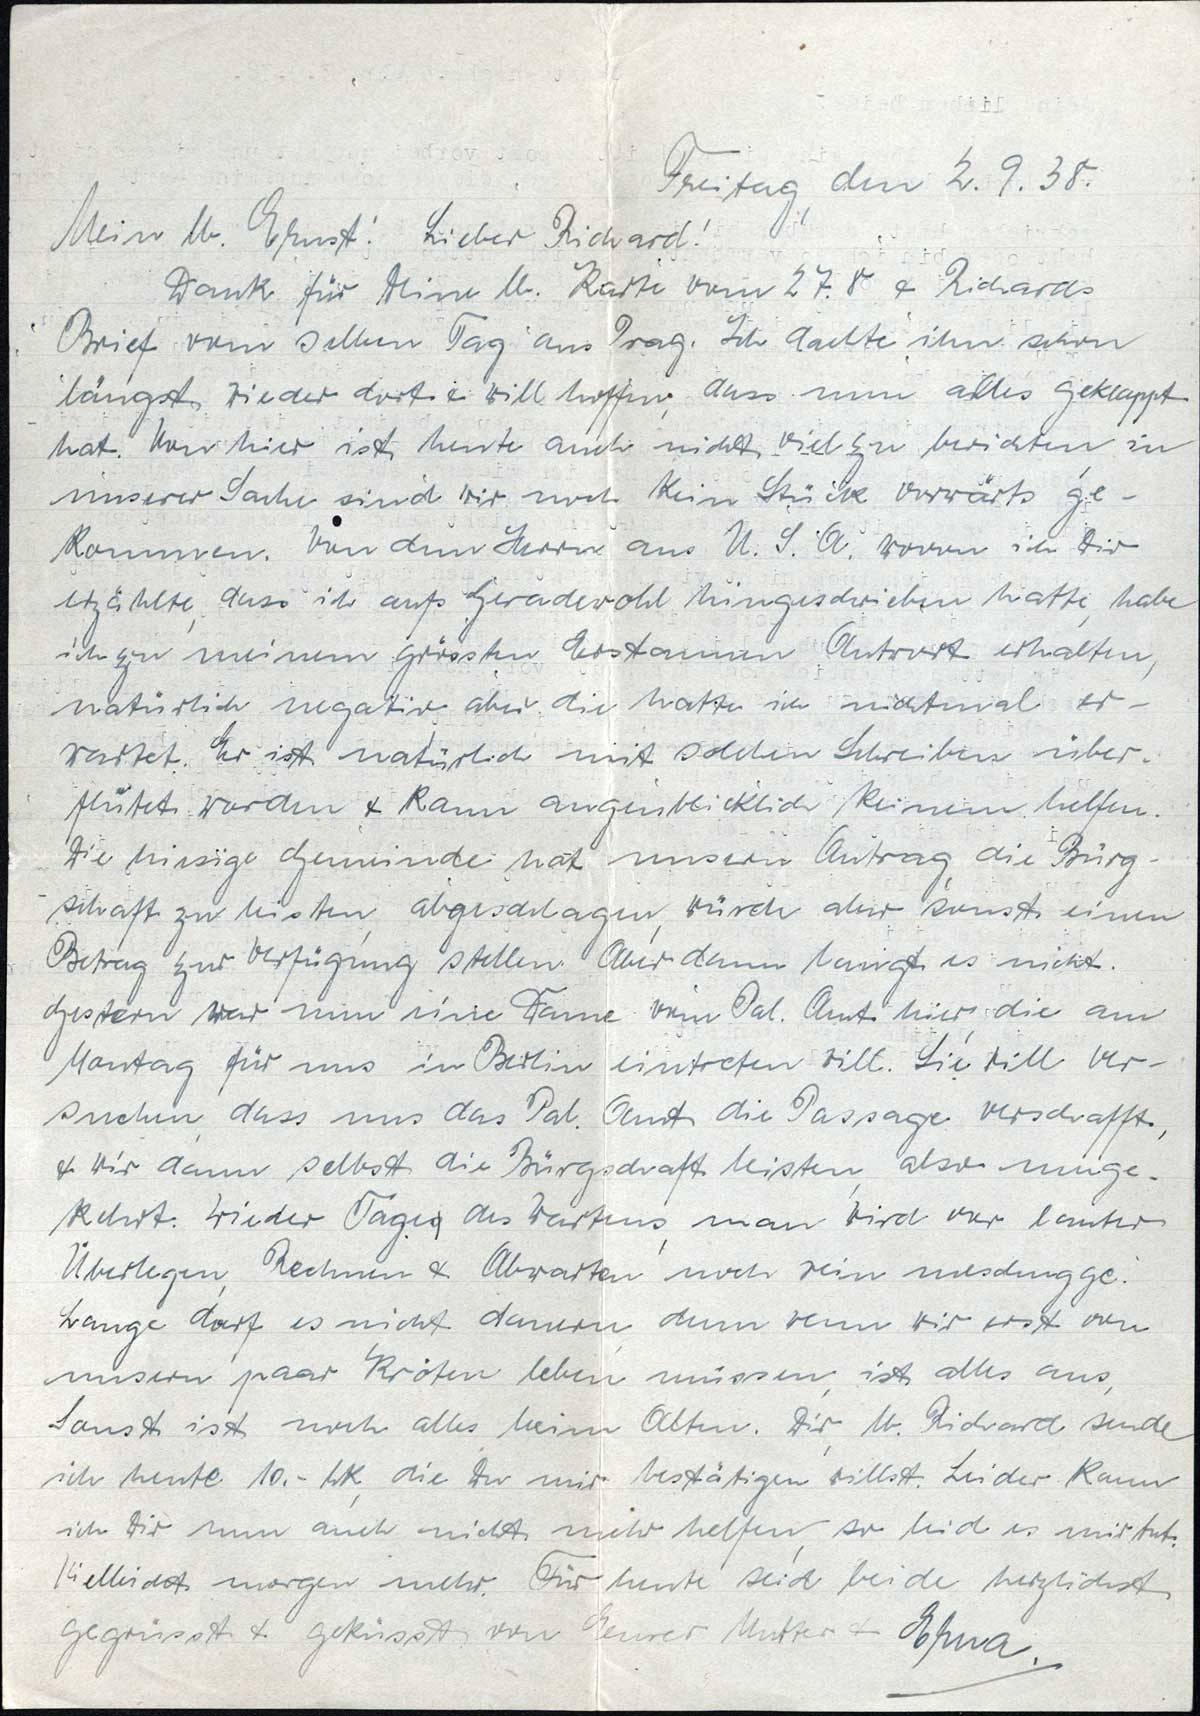 Freitag, den 2.9.38.
Mein lb. Ernst! Lieber Richard!
Dank für Deine lb. Karte vom 27.8 & Richards
Brief vom selben Tag aus Prag. Ich dachte ihn schon
längst wieder dort & will hoffen, dass nun alles geklappt
hat. Von hier ist heute auch nicht viel zu berichten in
unserer Sache sind wir noch kein Stück vorwärts ge-
kommen. Von dem Herrn aus U.S.A. wovon ich Dir
erzählte, dass ich aufs Geradewohl hingeschrieben hatte, habe
ich zu meinem grössten Erstaunen Antwort erhalten,
natürlich negativ aber die hatte ich nichtmal er-
wartet. Er ist natürlich mit solchen Schreiben über-
flutet worden & kann augenblicklich keinem helfen.
Die hiesige Gemeinde hat unsern Antrag, die Bürg-
schaft zu leisten, abgeschlagen, würde aber sonst einen
Betrag zur Verfügung stellen. Aber dann langt es nicht.
Gestern war nun eine Dame vom Pal. Amt hier, die am
Montag für uns in Berlin eintreten will. Sie will ver-
suchen, dass uns das Pal. Amt die Passage verschafft,
& wir dann selbst die Bürgschaft leisten, also umge-
kehrt. Wieder Tage des Wartens, man wird vor lauter
Überlegen, Rechnen & Abwarten noch rein meschugge.
Lange darf es nicht dauern, denn wenn wir erst von
unsern paar Kröten leben müssen, ist alles aus,
Sonst ist noch alles beim Alten. Dir, lb. Richard sende
ich heute 10.- die Du mir bestätigen willst. Leider kann
ich Dir nun auch nicht mehr helfen, so leid es mir tut.
Vielleicht morgen mehr. Für heute seid beide herzlichst
gegrüsst & geküsst von Eurer Mutter & Erna.